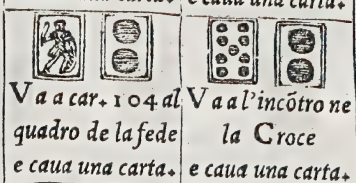 e caua una carta.
V a a car. 104 al
quadro de la fede
e caua una carta.
V a a l'incõtro ne
la Croce
e caua una carta.